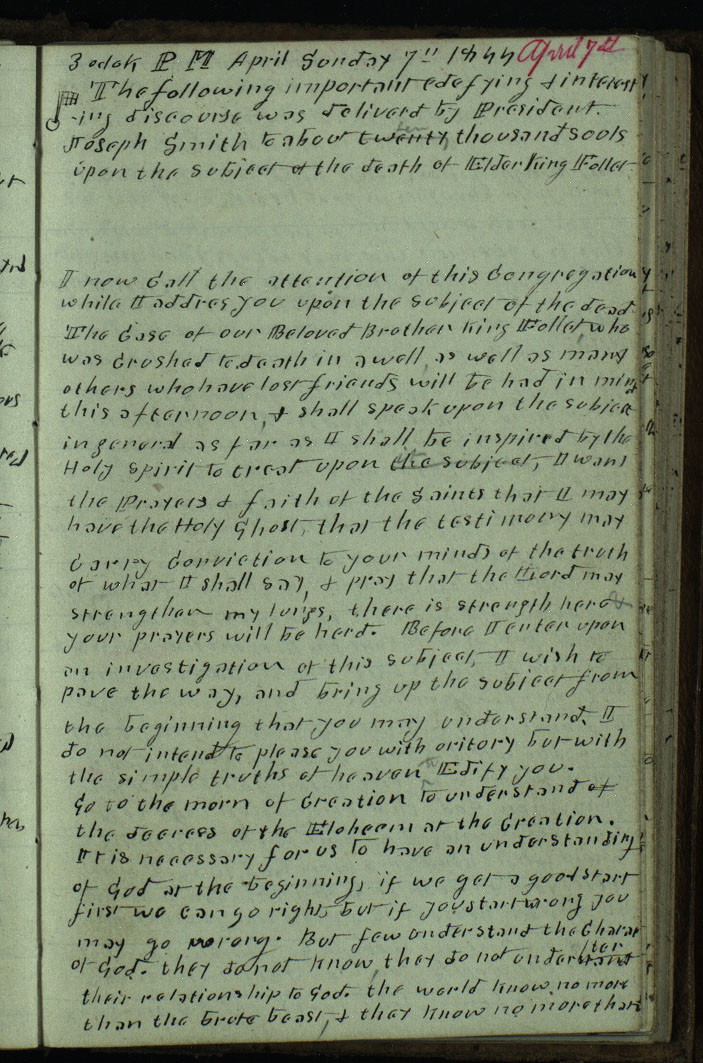 3 oclok P M April Sunday 7th 1844 April 7th
The following important edefying & interest
ing discourse was deliverd by President
Joseph Smith to about twenty ten thousand souls
upon the subject of the death of Elder King Follet
I now call the attention of this Congregation
while I addres you upon the subject of the dead
The case of our Beloved Brother King Follet who
was crushed to death in a well as well as many
others who have lost friends will be had in mind
this afternoon, & shall speak upon the subject
in general as far as I shall be inspired by the
Holy Spirit to treat upon the subject, I want
the Prayers & faith of the Saints that I may
have the Holy Ghost, that the testimony may
carry conviction to your minds of the truth
of what I shall say, & pray that the Lord may
strengthen my lungs, there is strength here &
your prayers will be herd. Before I enter upon
an investigation of this subject, I wish to
pave the way, and bring up the subject from
the beginning that you may understand, I
do not intend to please you with oritory but with
the simple truths of heaven Edify you.
Go to the morn of Creation to understand of
the decrees of the Eloheem at the Creation.
It is necessary for us to have an understanding
of God at the beginning, if we get a good start
first we can go right, but if you start wrong you
may go wrong. But few understand the Charac
ter
of God. they do not know, they do not understand
their relationship to God. the world know no more
than the brute beast, & they know no more than